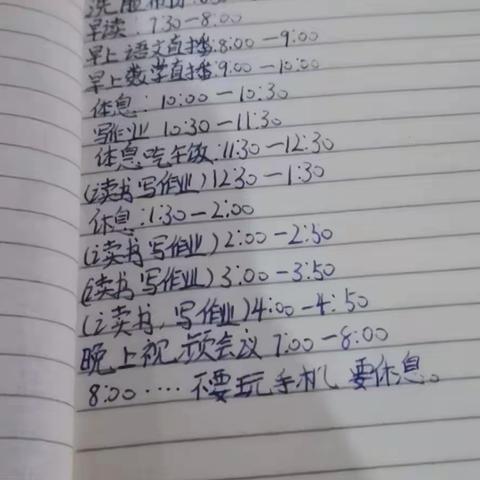 早读:730-8:00
早上语文直播:8:00-9:00
早上数学直播:9:00-10:00
休息:10:00-10:30
写作业 10:30-11:30
休息.吃午饭:11:30-12:30
(读书写作业)12:30-1:30
休息:1:30-2:00
(读书写作业)2:00-2:50
(读书写作业)3:00-3:50
(读书,写作业)4:00-4:50
晚上视频会议 7:00-8:00
8:00····不要玩手机 要休息。